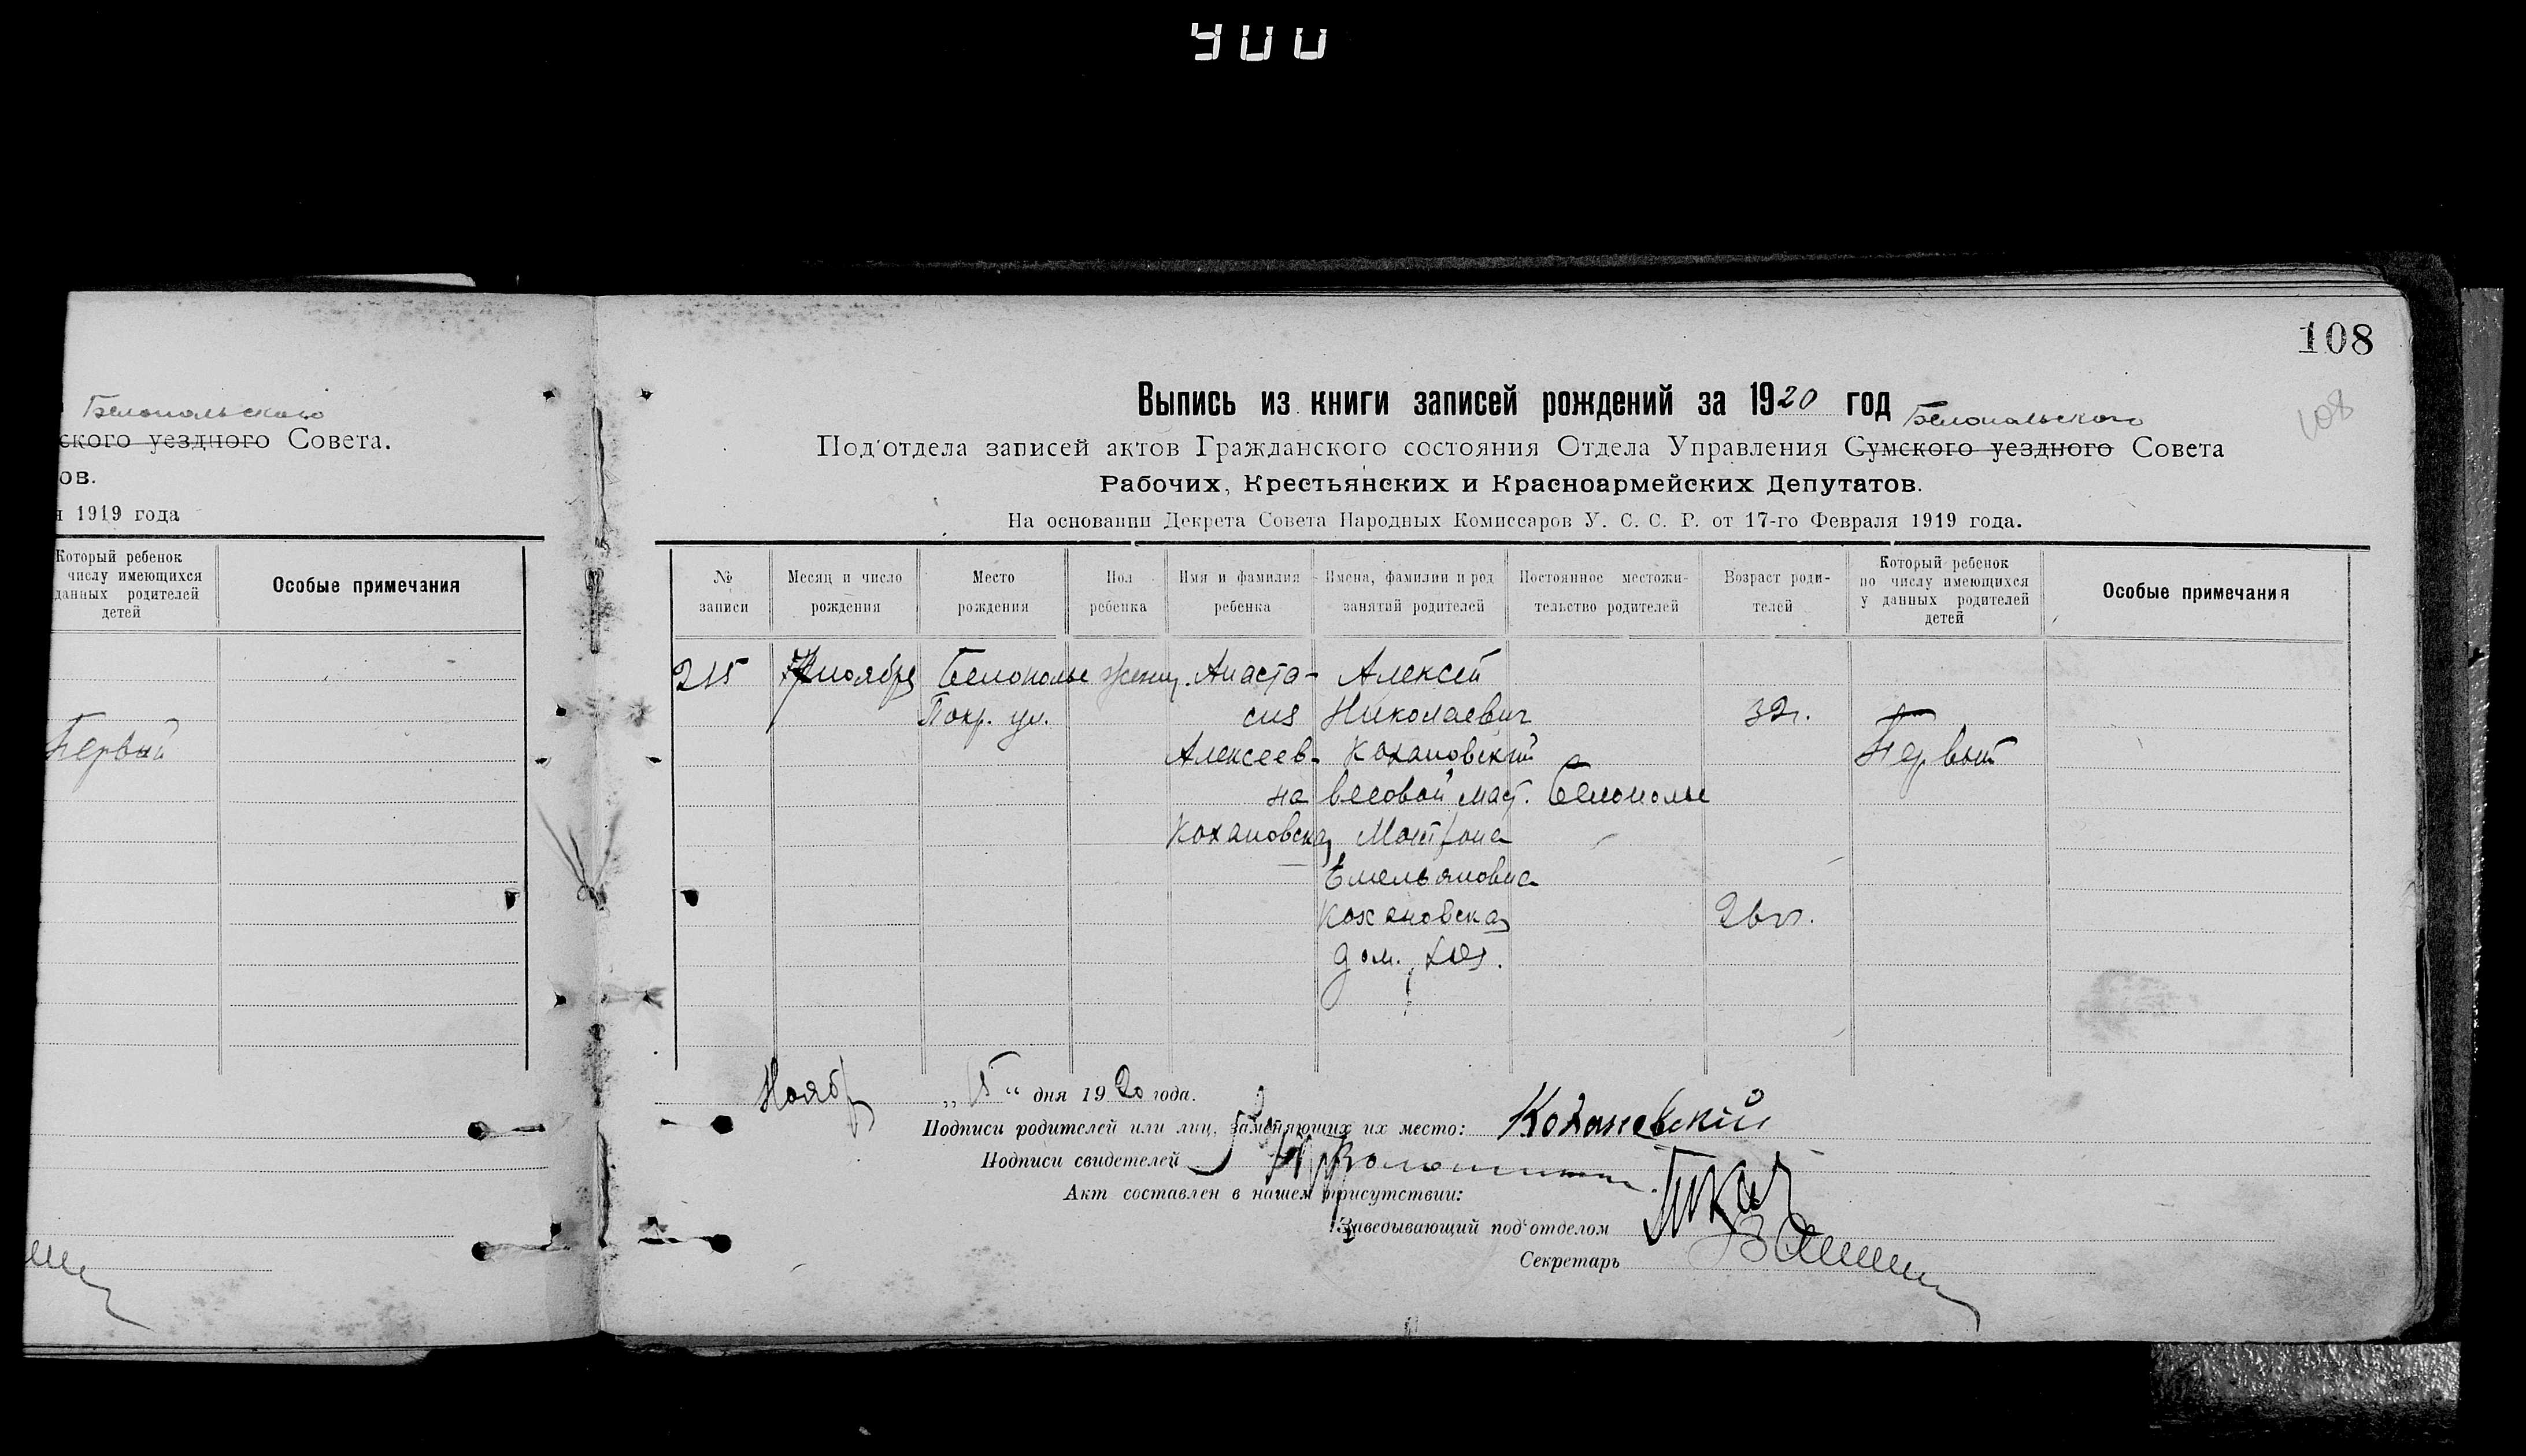 400
Белопольского
ского уездного Совета.
ов.
я 1919 года
Который ребенок
числу имеющихся
данных родителей
детей
Особые примечания
Первый
108
108
Выпись из книги записей рождений за 1920 год
Белопольского
Под'отдела записей актов Гражданского состояния Отдела Управления Сумского уездного Совета
Рабочих, Крестьянских и Красноармейских Депутатов.
На основании Декрета Совета Народных Комиссаров У. С. С. Р. от 17-го Февраля 1919 года.
№
записи
Месяц и число
рождения
Место
рождения
Пол
ребенка
Имя и фамилия
ребенка
Имена, фамилии и род
занятий родителей
Постоянное местожи-
тельство родителей
Возраст роди-
телей
Который ребенок
по числу имеющихся
у данных родителей
детей
Особые примечания
215
ноября
Белополье
Покр. ул.
женщ.
Анаста-
сия
Алексеев-
на
Кохановская
Алексей
Николаевич
Кохановский
весовой маст.
Емельяновна
Кохановская
дом. хоз.
Белополье
32г.
26 г.
Первый
Ноябр „ “ дня 1920 года.
Подписи родителей или лиц, заменяющих их место: Кохановский
Подписи свидетелей
Акт составлен в нашем присутствии:
Заведывающий под'отделом
Секретарь